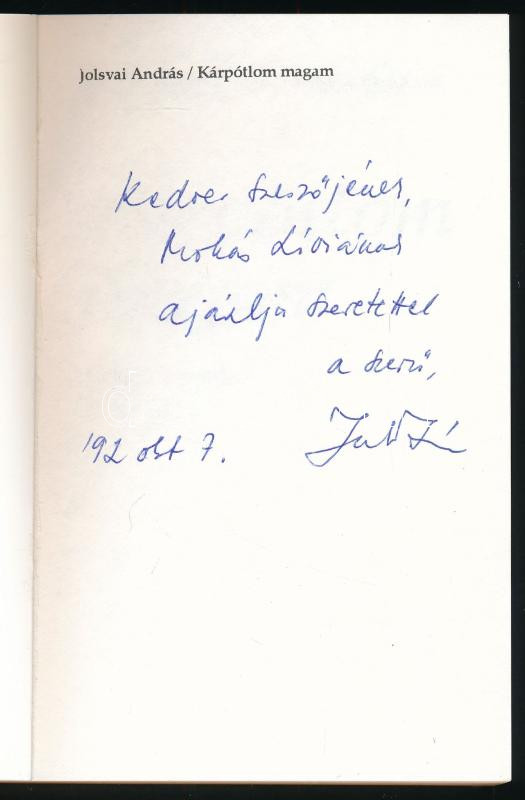 Jolsvai András / Kárpótlom magam
Kedves Szerzőjének,
Mohás Líviának
ajánlja szeretettel
a szerző,
'92 okt 7.